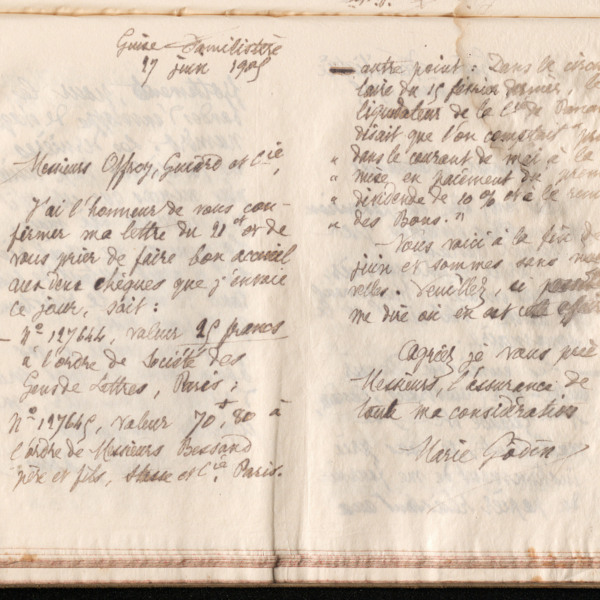 Guise Familistère
27 juin 1905
Messieurs Offroy, Guiard et Cie,
J'ai l'honneur de vous con-
firmer ma lettre du 21 ct et de
vous prier de faire bon accueil
aux deux chèques que j'envoie
ce jour, soit :
– No 127644, valeur 25 francs
à l'ordre de Société des
Gens de Lettres, Paris ;
No 127645, valeur 70f,80 à
l'ordre de Messieurs Bessand
père et fils, et Cie. Paris.
— autre point : Dans le circu
laire du 15 février dernier, le
liquidateur de la Cie de Panama
disait que l'on comptait "pro
" dans le courant de mai, à la
" mise en paiement du prem
" dividende de 10 % et à la rem
" des Bons."
Nous voici à la fin de
juin et sommes sans nou
velles. Veuillez, si possible
me dire où en est cette affaire
Agréez je vous prie
Messieurs, l'assurance de
toute ma considération
Marie Godin